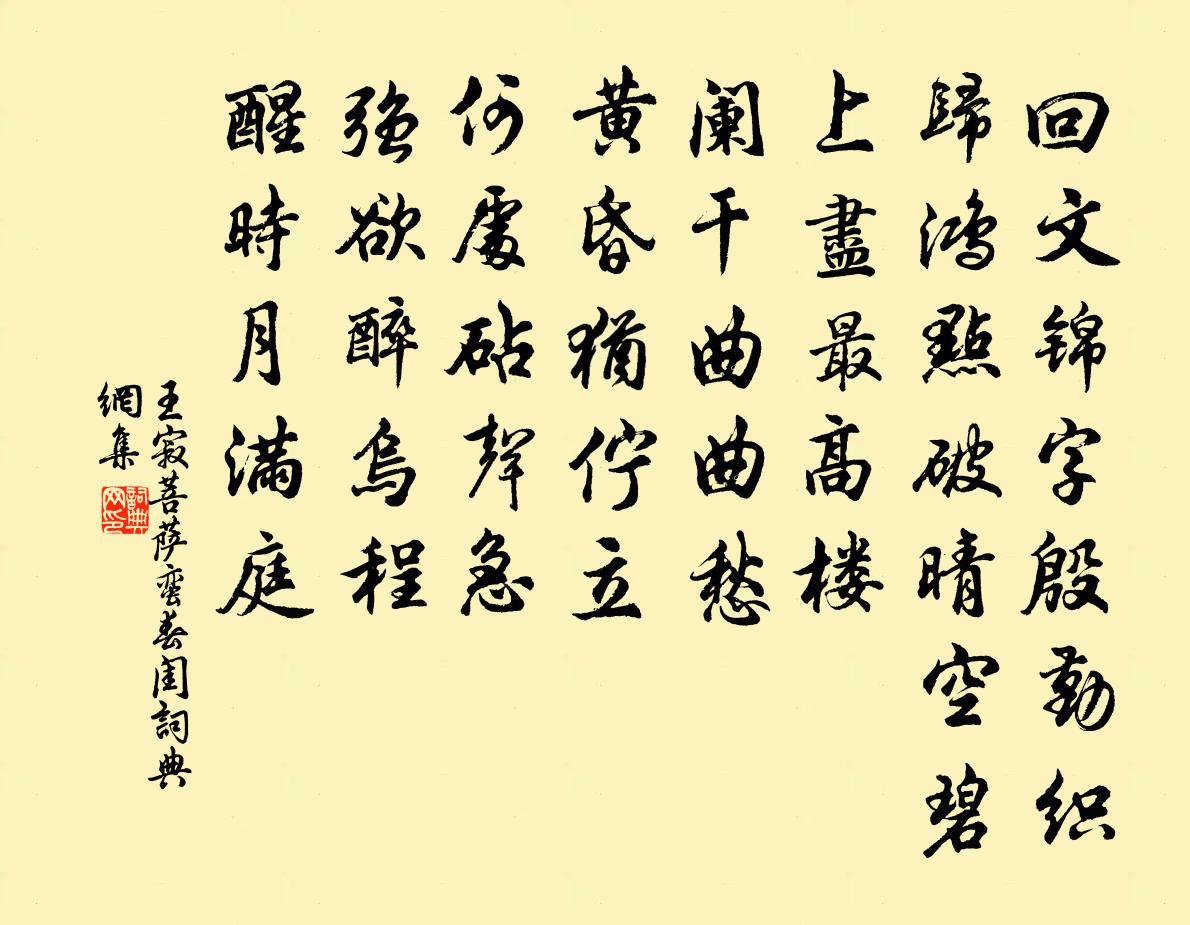 回文锦字殷勤织
歸鴻點破晴空碧
上盡最高楼
阑干曲曲愁
黄昏猶佇立
何處砧聲急
強欲醉烏程
醒時月滿庭
王寂菩萨蛮春闺詞典
網集
詞典
网印